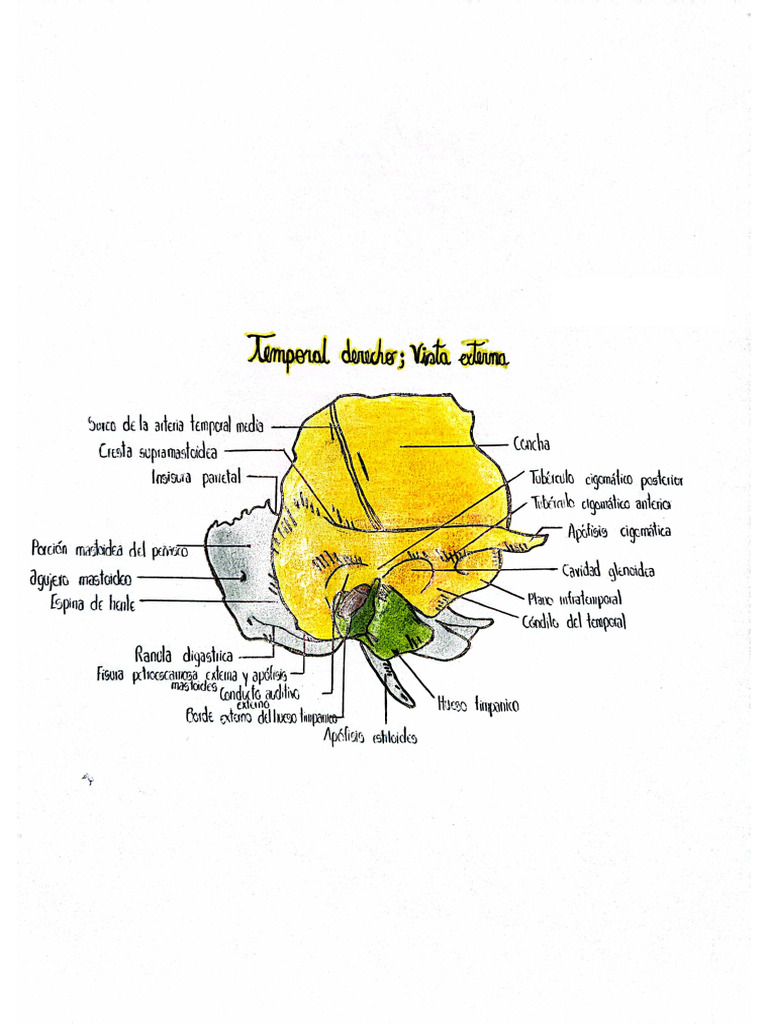 Temporal derecho; Vista externa
Surco de la arteria temporal media
Cresta supramastoidea
Insisura parietal
Porción mastoidea del peñasco
agujero mastoideo
Espina de henle
Ranula digastrica
Fisura petroescamosa externa y apófisis
mastoides
Conducto auditivo
externo
Borde externo del hueso timpánico
Apófisis estiloides
Concha
Tubérculo cigomático posterior
Tubérculo cigomático anterior
Apófisis cigomática
Cavidad glenoidea
Plano infratemporal
Cóndilo del temporal
Hueso timpanico